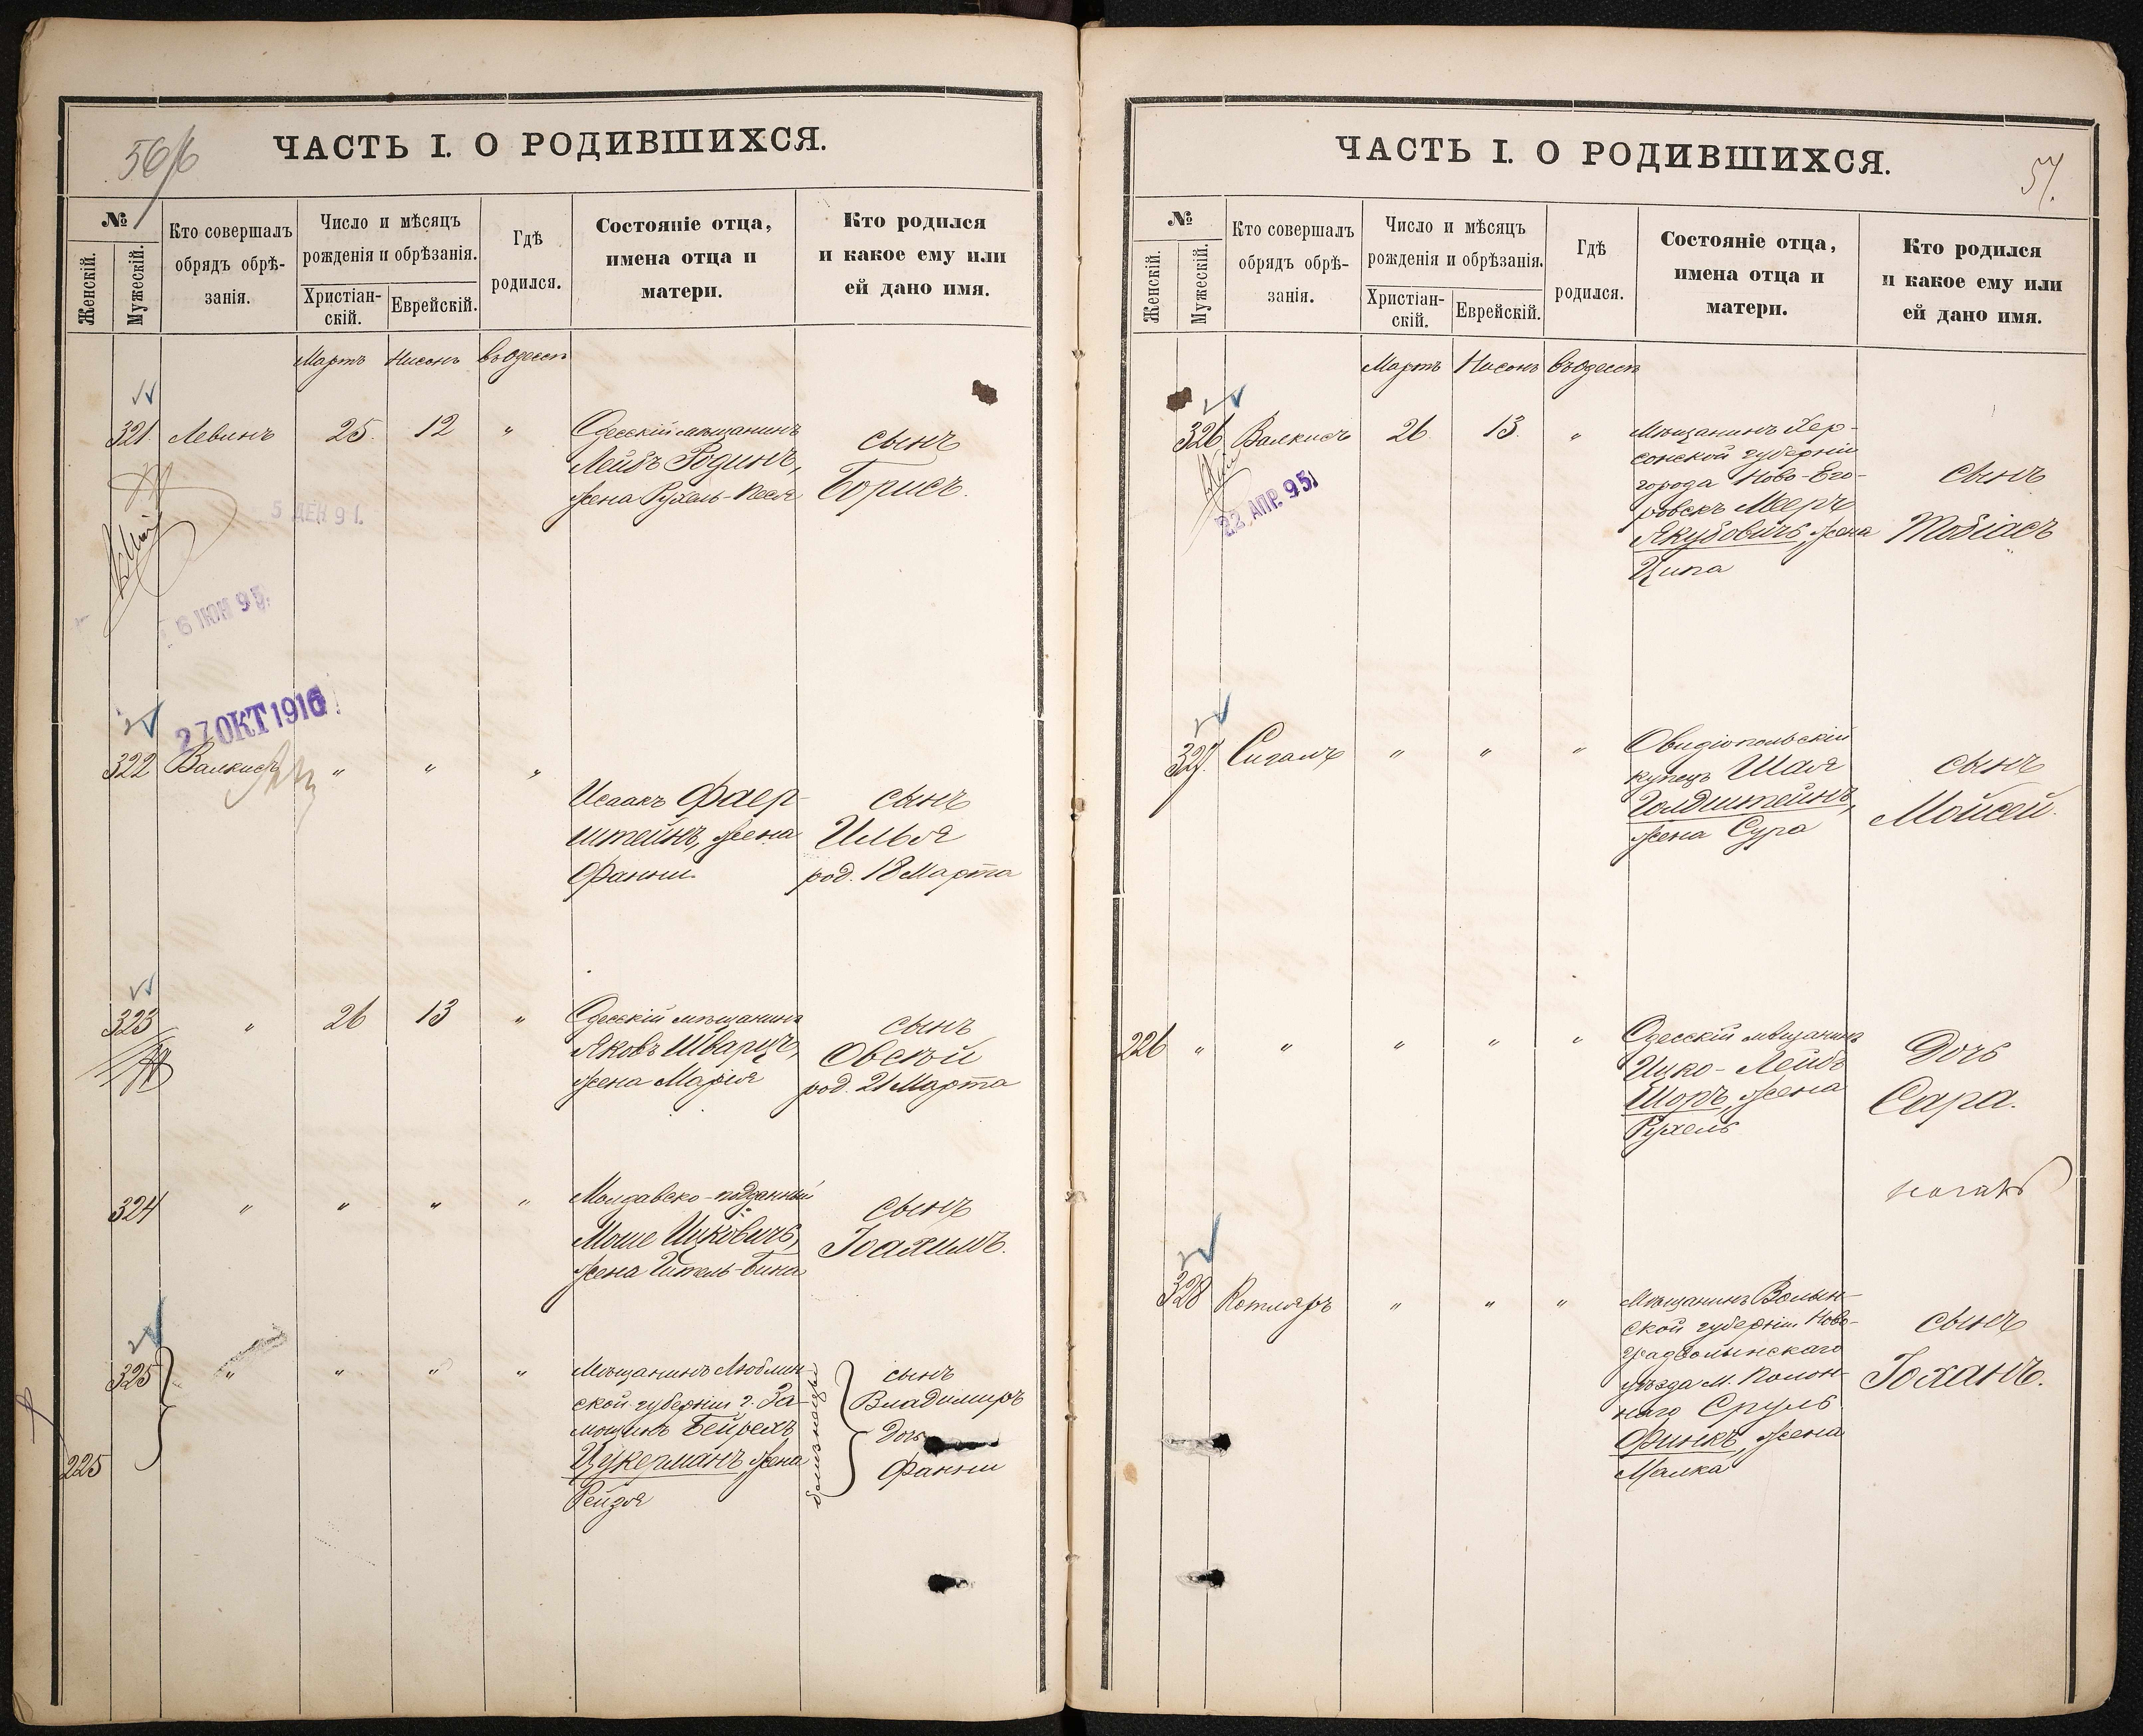 56/б
ЧАСТЬ I. О РОДИВШИХСЯ.
№
Женскій.
Мужескій.
Кто совершалъ
обрядъ обрѣ-
занія.
Число и мѣсяцъ
рожденія и обрѣзанія.
Христіан-
скій.
Еврейскій.
Гдѣ
родился.
Состояніе отца,
имена отца и
матери.
Кто родился
и какое ему или
ей дано имя.
Мартъ Нисонъ въ Одессѣ
321. Левинъ 25. 12 "
Одесскій мѣщанинъ
Лейбъ Родинъ,
жена Рухель-Песя
сынъ
Борисъ.
6 ІЮН 95.
27 ОКТ 1916
322 Валкисъ " " "
Исаакъ Фаер-
штейнъ, жена
Фанни.
сынъ
Илья
род. 18 Марта
323 " 26 13 "
Одесскій мѣщанинъ
Яковъ Шварцъ,
жена Марія
сынъ
Овсѣй
род. 21 Марта
324 " " " "
Молдавско-подданный
Мошe Ицковичъ,
жена Гитель-Бина
сынъ
Іоахимъ.
325 " " " "
225
Мѣщанинъ Люблин-
ской губерніи г. За-
мощинъ Бейрехъ
Цукерманъ, жена
Рейзя
близнецы
сынъ
Владимиръ
Дочь
Фанни
ЧАСТЬ I. О РОДИВШИХСЯ.
57.
№
Женскій.
Мужескій.
Кто совершалъ
обрядъ обрѣ-
занія.
Число и мѣсяцъ
рожденія и обрѣзанія.
Христіан-
скій.
Еврейскій.
Гдѣ
родился.
Состояніе отца,
имена отца и
матери.
Кто родился
и какое ему или
ей дано имя.
Мартъ Нисонъ въ Одессѣ
326 Валкисъ 26 13. "
22 АПР. 95
Мѣщанинъ Хер-
сонской губерніи
города Ново-Его-
ровскъ Мееръ
Якубовичъ, жена
Ципа
сынъ
Тобіасъ
327. Сигалъ " " "
Овидіопольскій
купецъ Шая
Голдштейнъ,
жена Сура
сынъ
Мойсей.
226 " " " " "
Одесскій мѣщанинъ
Ицко-Лейбъ
Шоръ, жена
Рухель
Дочь
Сара.
328 Котляръ " " "
Мѣщанинъ Волын-
ской губерніи Ново-
градволынскаго
уѣзда м. Полон-
наго Сруль
Финкъ, жена
Малка
сынъ
Іоханъ.